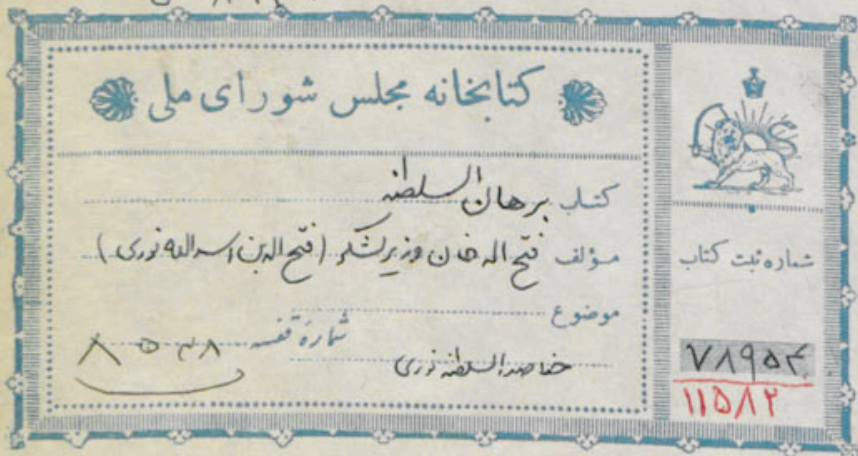 کتابخانه مجلس شورای ملی
کتاب برهان السلطنه
مؤلف فتح اله خان وزیر لشکر (فتح اله بن اسداله نوری)
موضوع
شمارهٔ قفسه ۸۵۴۸
السلطنه نوری
شماره ثبت کتاب
۷۸۹۵۴
۱۱۵۸۲